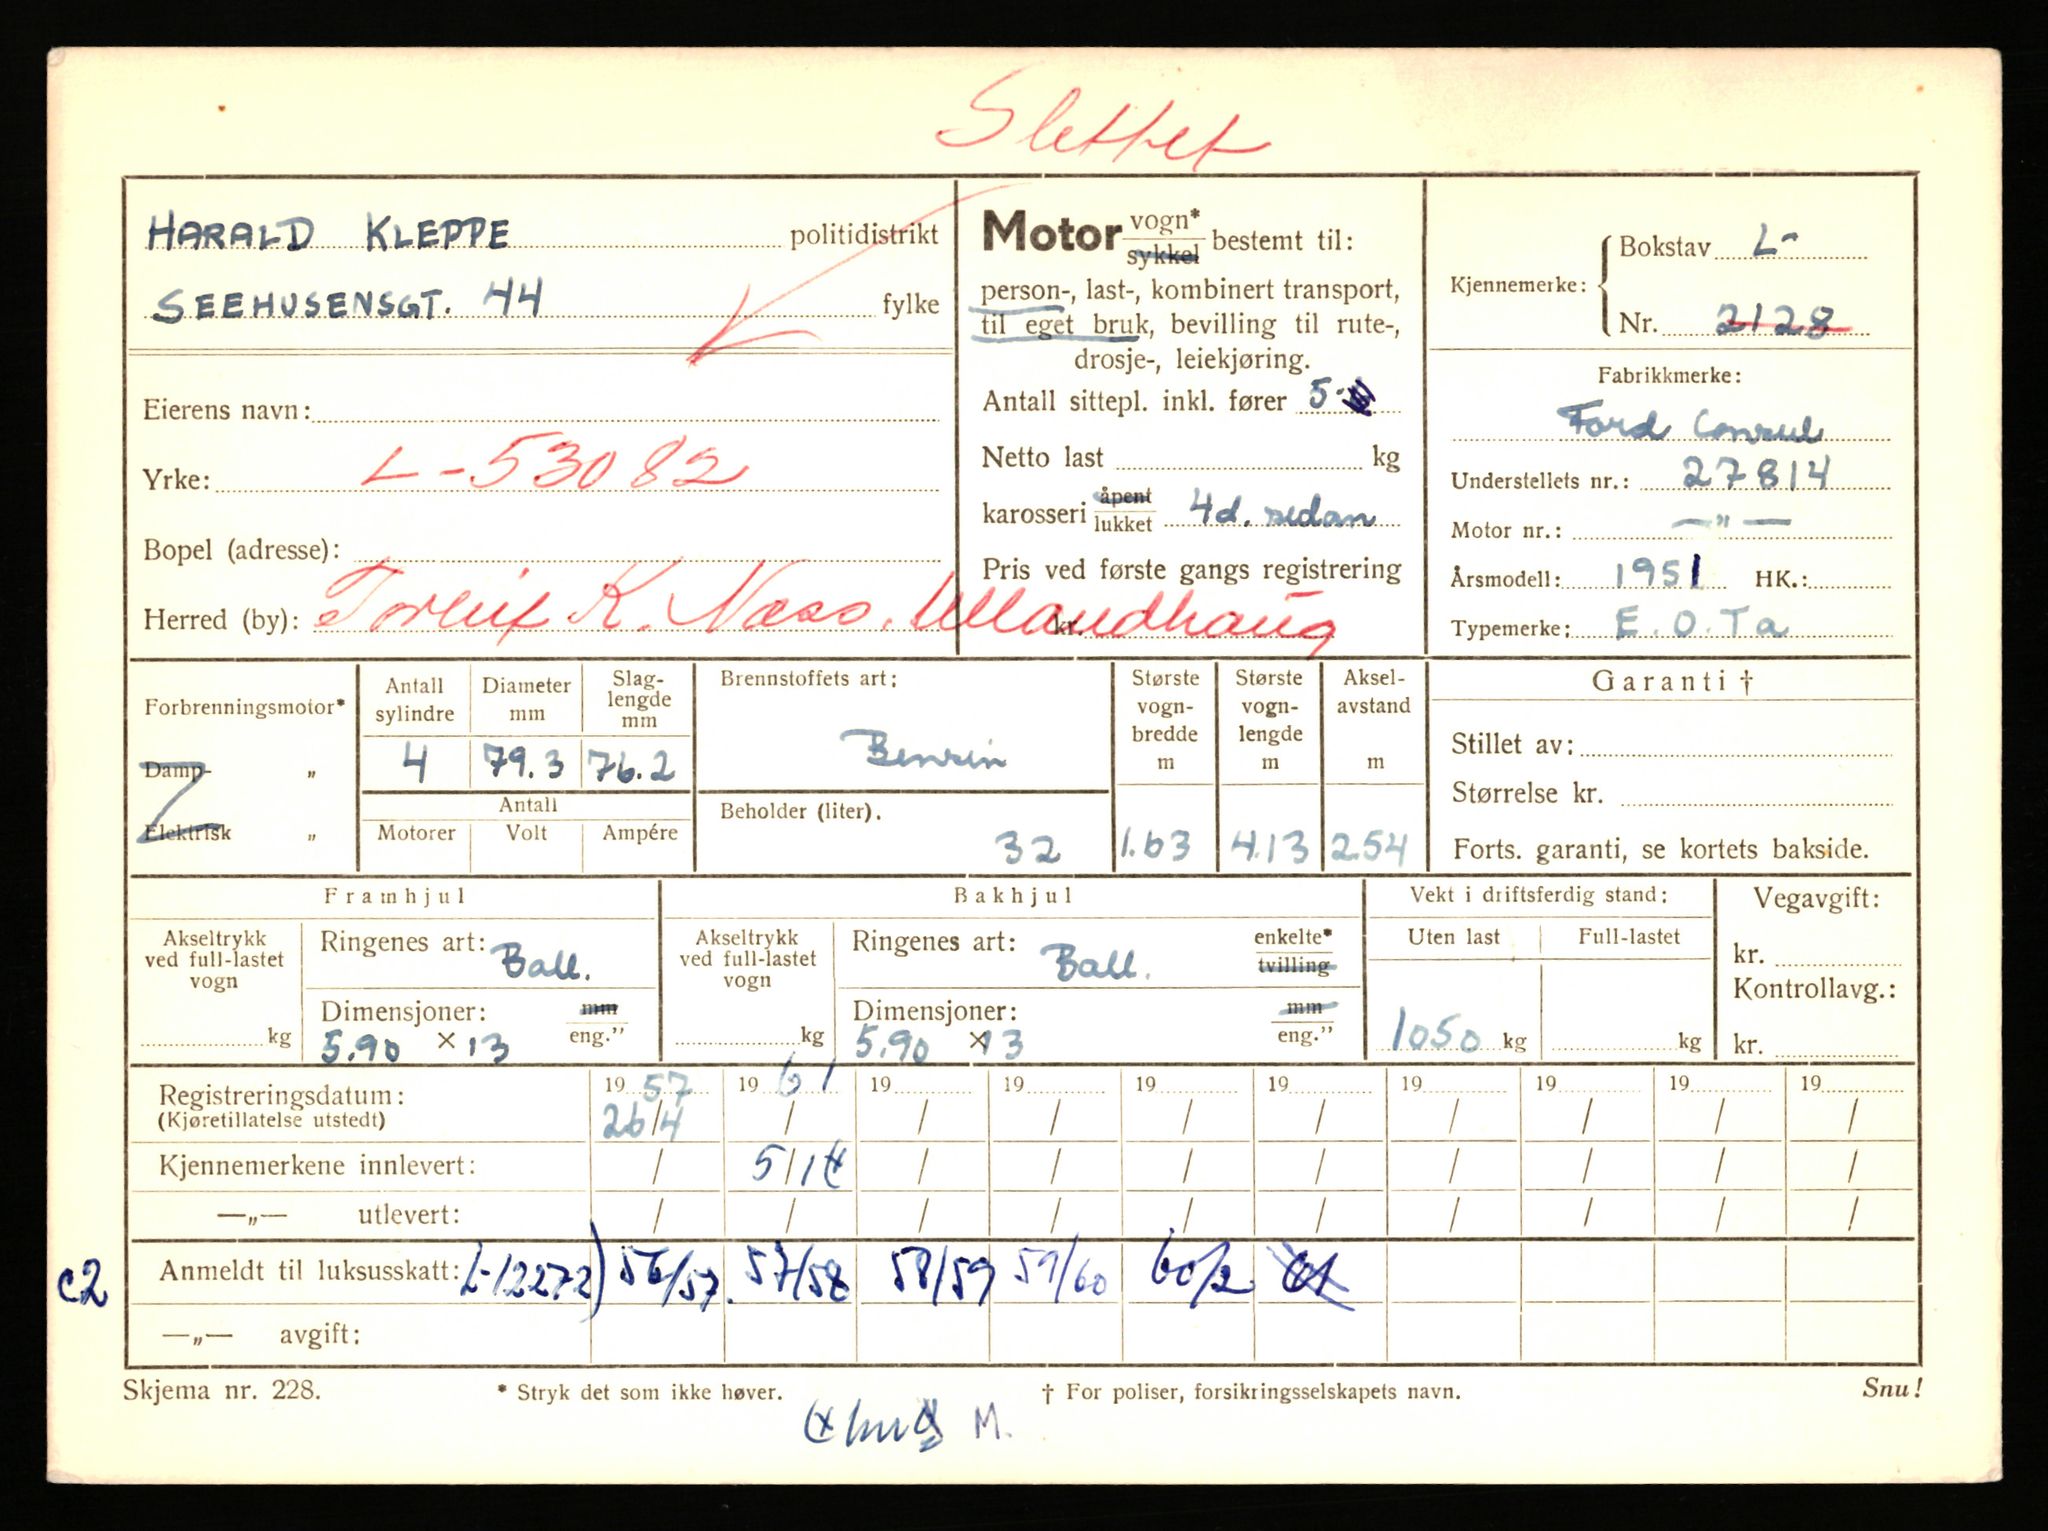 Slettet
HARALD KLEPPE politidistrikt
SEEHUSENSGT. 44 fylke
Eierens navn:
Yrke: L-53082
Bopel (adresse):
Herred (by): Torleif K. Næss. Ullandhaug
Motor vogn* sykkel bestemt til:
person-, last-, kombinert transport,
til eget bruk, bevilling til rute-,
drosje-, leiekjøring.
Antall sittepl. inkl. fører 5
Netto last kg
karosseri åpent lukket 4d. sedan
Pris ved første gangs registrering
kr.
Kjennemerke: Bokstav L-
Nr. 2128
Fabrikkmerke:
Ford Consul
Understellets nr.: 27814
Motor nr.: —"—
Årsmodell: 1951 HK.:
Typemerke: E.O.Ta
Forbrenningsmotor*
Damp- „
Elektrisk „
Antall sylindre 4
Diameter mm 79.3
Slag-lengde mm 76.2
Antall
Motorer Volt Ampére
Brennstoffets art:
Bensin
Beholder (liter).
32
Største vogn-bredde m 1.63
Største vogn-lengde m 4.13
Aksel-avstand m 2.54
Garanti †
Stillet av:
Størrelse kr.
Forts. garanti, se kortets bakside.
Framhjul
Akseltrykk ved full-lastet vogn kg
Ringenes art: Ball.
Dimensjoner: mm eng."
5.90 × 13
Bakhjul
Akseltrykk ved full-lastet vogn kg
Ringenes art: Ball. enkelte* tvilling
Dimensjoner: mm eng."
5.90 × 13
Vekt i driftsferdig stand:
Uten last Full-lastet
1050 kg kg
Vegavgift:
kr.
Kontrollavg.:
kr.
Registreringsdatum: 19 57 19 61 19 19 19 19 19 19 19 19
(Kjøretillatelse utstedt) 26/4 / / / / / / / / /
Kjennemerkene innlevert: / 5/1 / / / / / / / /
—„— utlevert: / / / / / / / / / /
c2 Anmeldt til luksusskatt: L-12272) 56/57. 57/58 58/59 59/60 60/2
—„— avgift:
Skjema nr. 228. * Stryk det som ikke høver. † For poliser, forsikringsselskapets navn. Snu!
M.